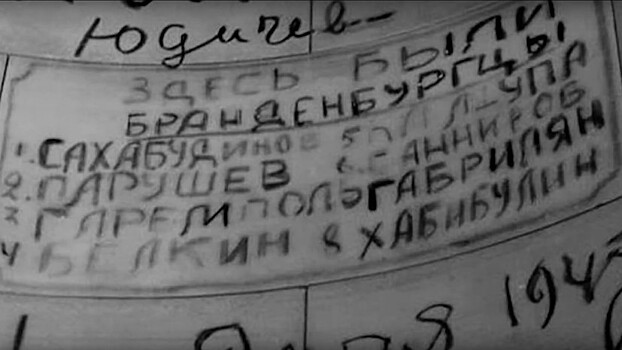 Юдичев
ЗДЕСЬ БЫЛИ
БРАНДЕНБУРГЦЫ
1. САХАБУДИНОВ 5
2. ПАРУШЕВ 6. САННИКОВ
3 ГАРЕМ ГАБРИЛЯН
4 БЕЛКИН 8 ХАБИБУЛИН
194